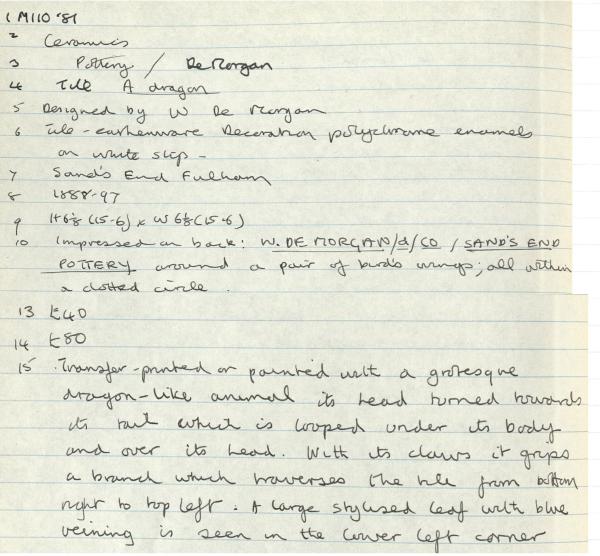 1 M110 '81
2 Ceramics
3 Pottery / De Morgan
4 Tile A dragon
5 Designed by W De Morgan
6 Tile - earthenware Decoration polychrome enamels
on white slip -
7 Sand's End Fulham
8 1888-97
9 H 6⅛ (15·6) x W 6⅛ (15·6)
10 Impressed on back: W. DE MORGAN/&/CO / SAND'S END
POTTERY around a pair of bird's wings; all within
a dotted circle.
13 £40
14 £80
15 Transfer-printed or painted with a grotesque
dragon-like animal its head turned towards
its tail which is looped under its body
and over its head. With its claws it grips
a branch which traverses the tile from bottom
right to top left. A large stylised leaf with blue
veining is seen in the lower left corner